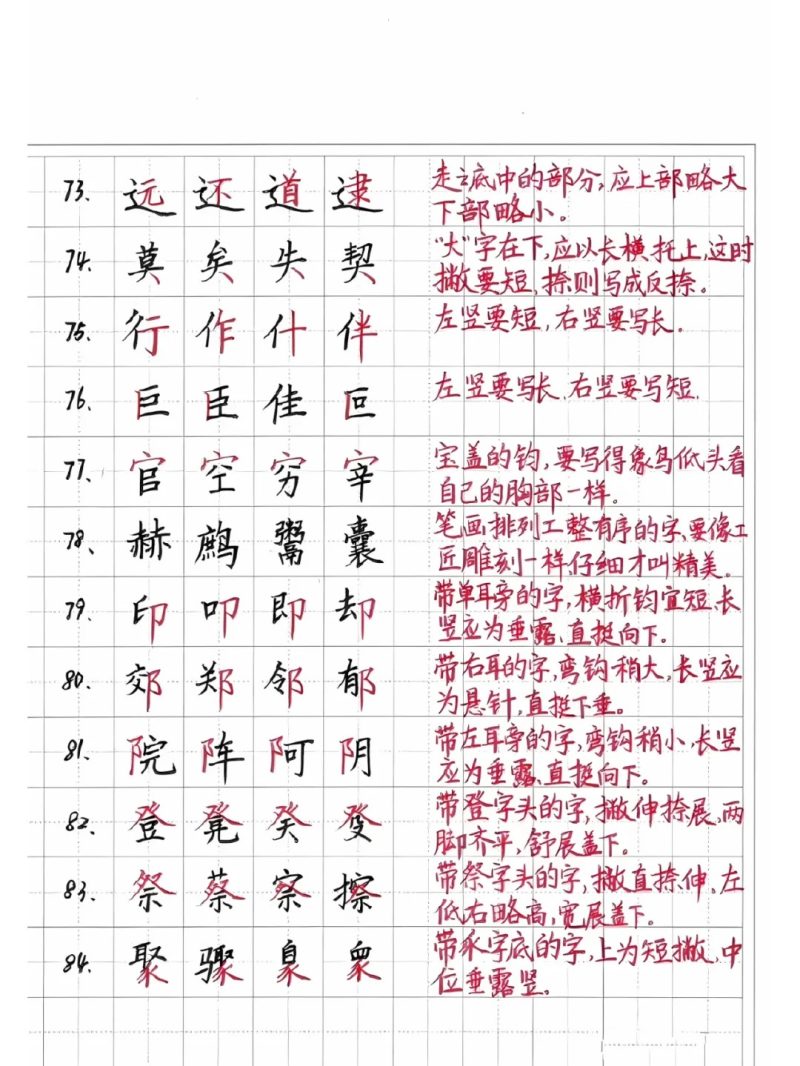 73. 远 还 道 逮 走之底中的部分,应上部略大
下部略小。
74. 莫 矣 失 契 "大"字在下,应以长横托上,这时
撇要短,捺则写成反捺。
75. 行 作 什 伴 左竖要短,右竖要写长.
76. 巨 臣 佳 叵 左竖要写长、右竖要写短.
77. 官 空 穷 宰 宝盖的钩,要写得象鸟低头看
自己的胸部一样。
78. 赫 鹧 鬻 囊 笔画排列工整有序的字、要像工
匠雕刻一样仔细才叫精美。
79. 印 叩 即 却 带单耳旁的字,横折钩宜短、长
竖应为垂露、直挺向下。
80. 郊 郑 邻 郁 带右耳的字,弯钩稍大,长竖应
为悬针,直挺下垂。
81. 院 阵 阿 阴 带左耳旁的字,弯钩稍小,长竖
应为垂露、直挺向下。
82. 登 凳 癸 带登字头的字,撇伸捺展,两
脚齐平,舒展盖下。
83. 祭 蔡 察 擦 带祭字头的字,撇直捺伸、左
低右略高,宽展盖下。
84. 聚 骤 衆 带乑字底的字,上为短撇,中
位垂露竖。